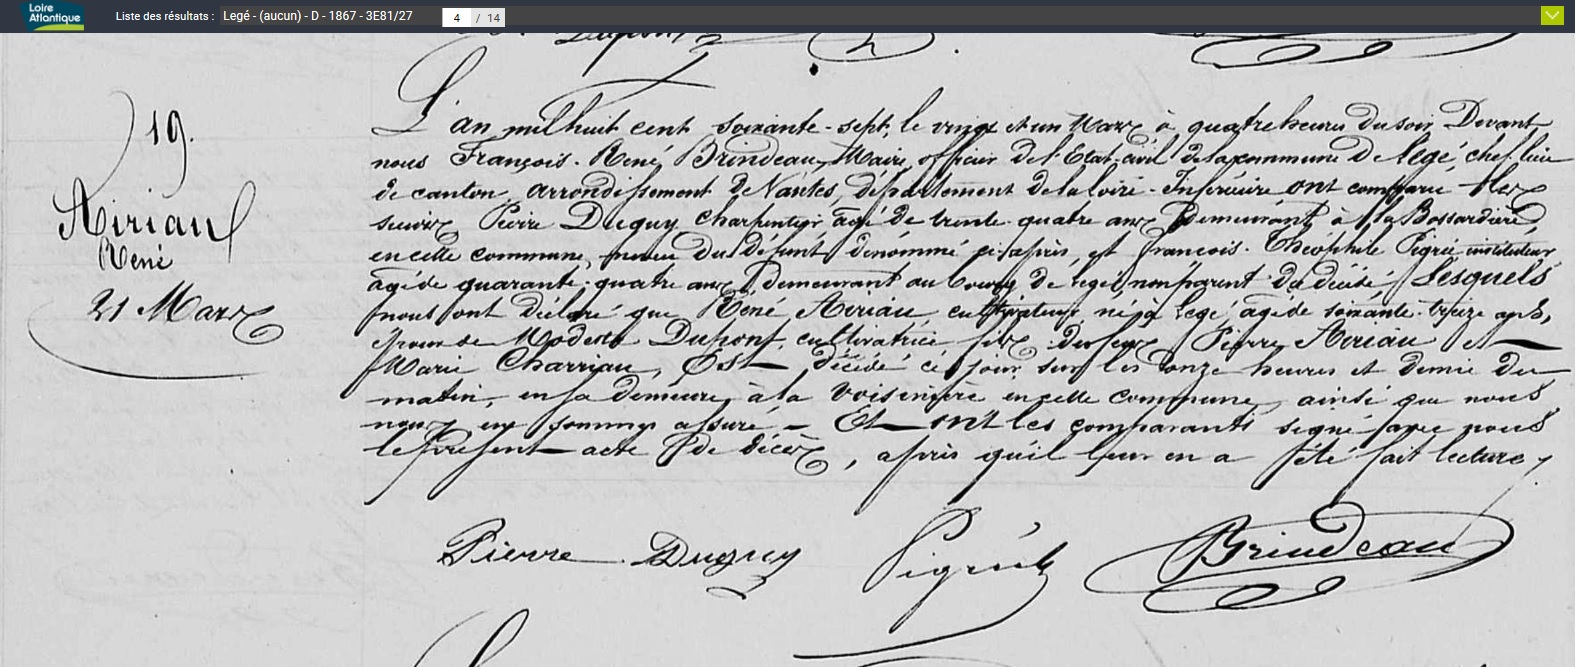 Loire
Atlantique
Liste des résultats : Legé - (aucun) - D - 1867 - 3E81/27 4 / 14
19.
Airiau
René
21 Mars
L'an mil huit cent soixante-sept, le vingt et un Mars à quatre heures du soir, Devant
nous François-René Brindeau, Maire, officier de l'Etat-civil de la commune de legé chef-lieu
de canton, arrondissement de Nantes, département de la loire-Inférieure ont comparu les
sieurs Pierre Duguy charpentier âgé de trente-quatre ans demeurant à la Bossardière,
en cette commune, neveu du défunt dénommé ci-après, et François-Théophile Pigrée instituteur
âgé de quarante-quatre ans, demeurant au bourg de legé, non parent du décédé, Lesquels
nous ont déclaré que Réné Airiau, cultivateur, né à legé, âgé de soixante-treize ans,
époux de Modeste Dupont, cultivatrice, fils de feux Pierre Airiau et
Marie Charriau, Est décédé ce jour, sur les onze heures et demie du
matin, en sa demeure, à la Voisinière en cette commune, ainsi que nous
nous en sommes assuré - Et ont les comparants signé avec nous
le présent acte de décès, après qu'il leur en a été fait lecture
Pierre Duguy Brindeau